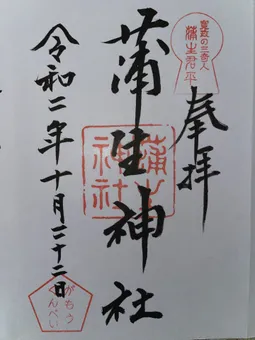 寛政の三奇人
蒲生君平
奉拝
蒲生神社
蒲生神社
令和二年十月二十二日
がもう
くんぺい